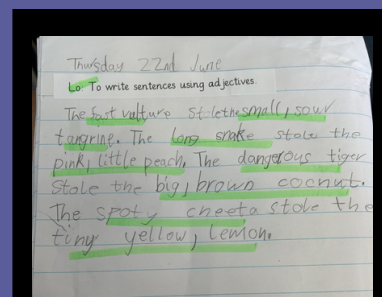 Thursday 22nd June
Lo. To write sentences using adjectives.
The fast vulture stole the small, sour
tangrine. The long snake stole the
pink, little peach. The dangerous tiger
stole the big, brown coconut.
The spoty cheeta stole the
tiny yellow, lemon.